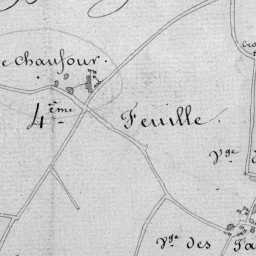 e Chaufour.
4ème Feuille.
Vge
Vge des